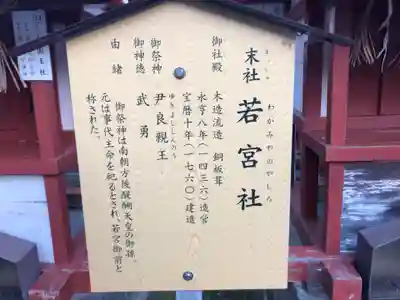 まっしゃ わかみやのやしろ
末社 若宮社
御社殿 木造流造 銅板葺
永享八年(一四三六)造営
宝暦十年(一七六〇)建造
御祭神 尹良親王
ゆきよししんのう
御神徳 武勇
由緒
御祭神は南朝方後醍醐天皇の御孫。
元は事代主命を祀るとされ、若宮御前と
称された。